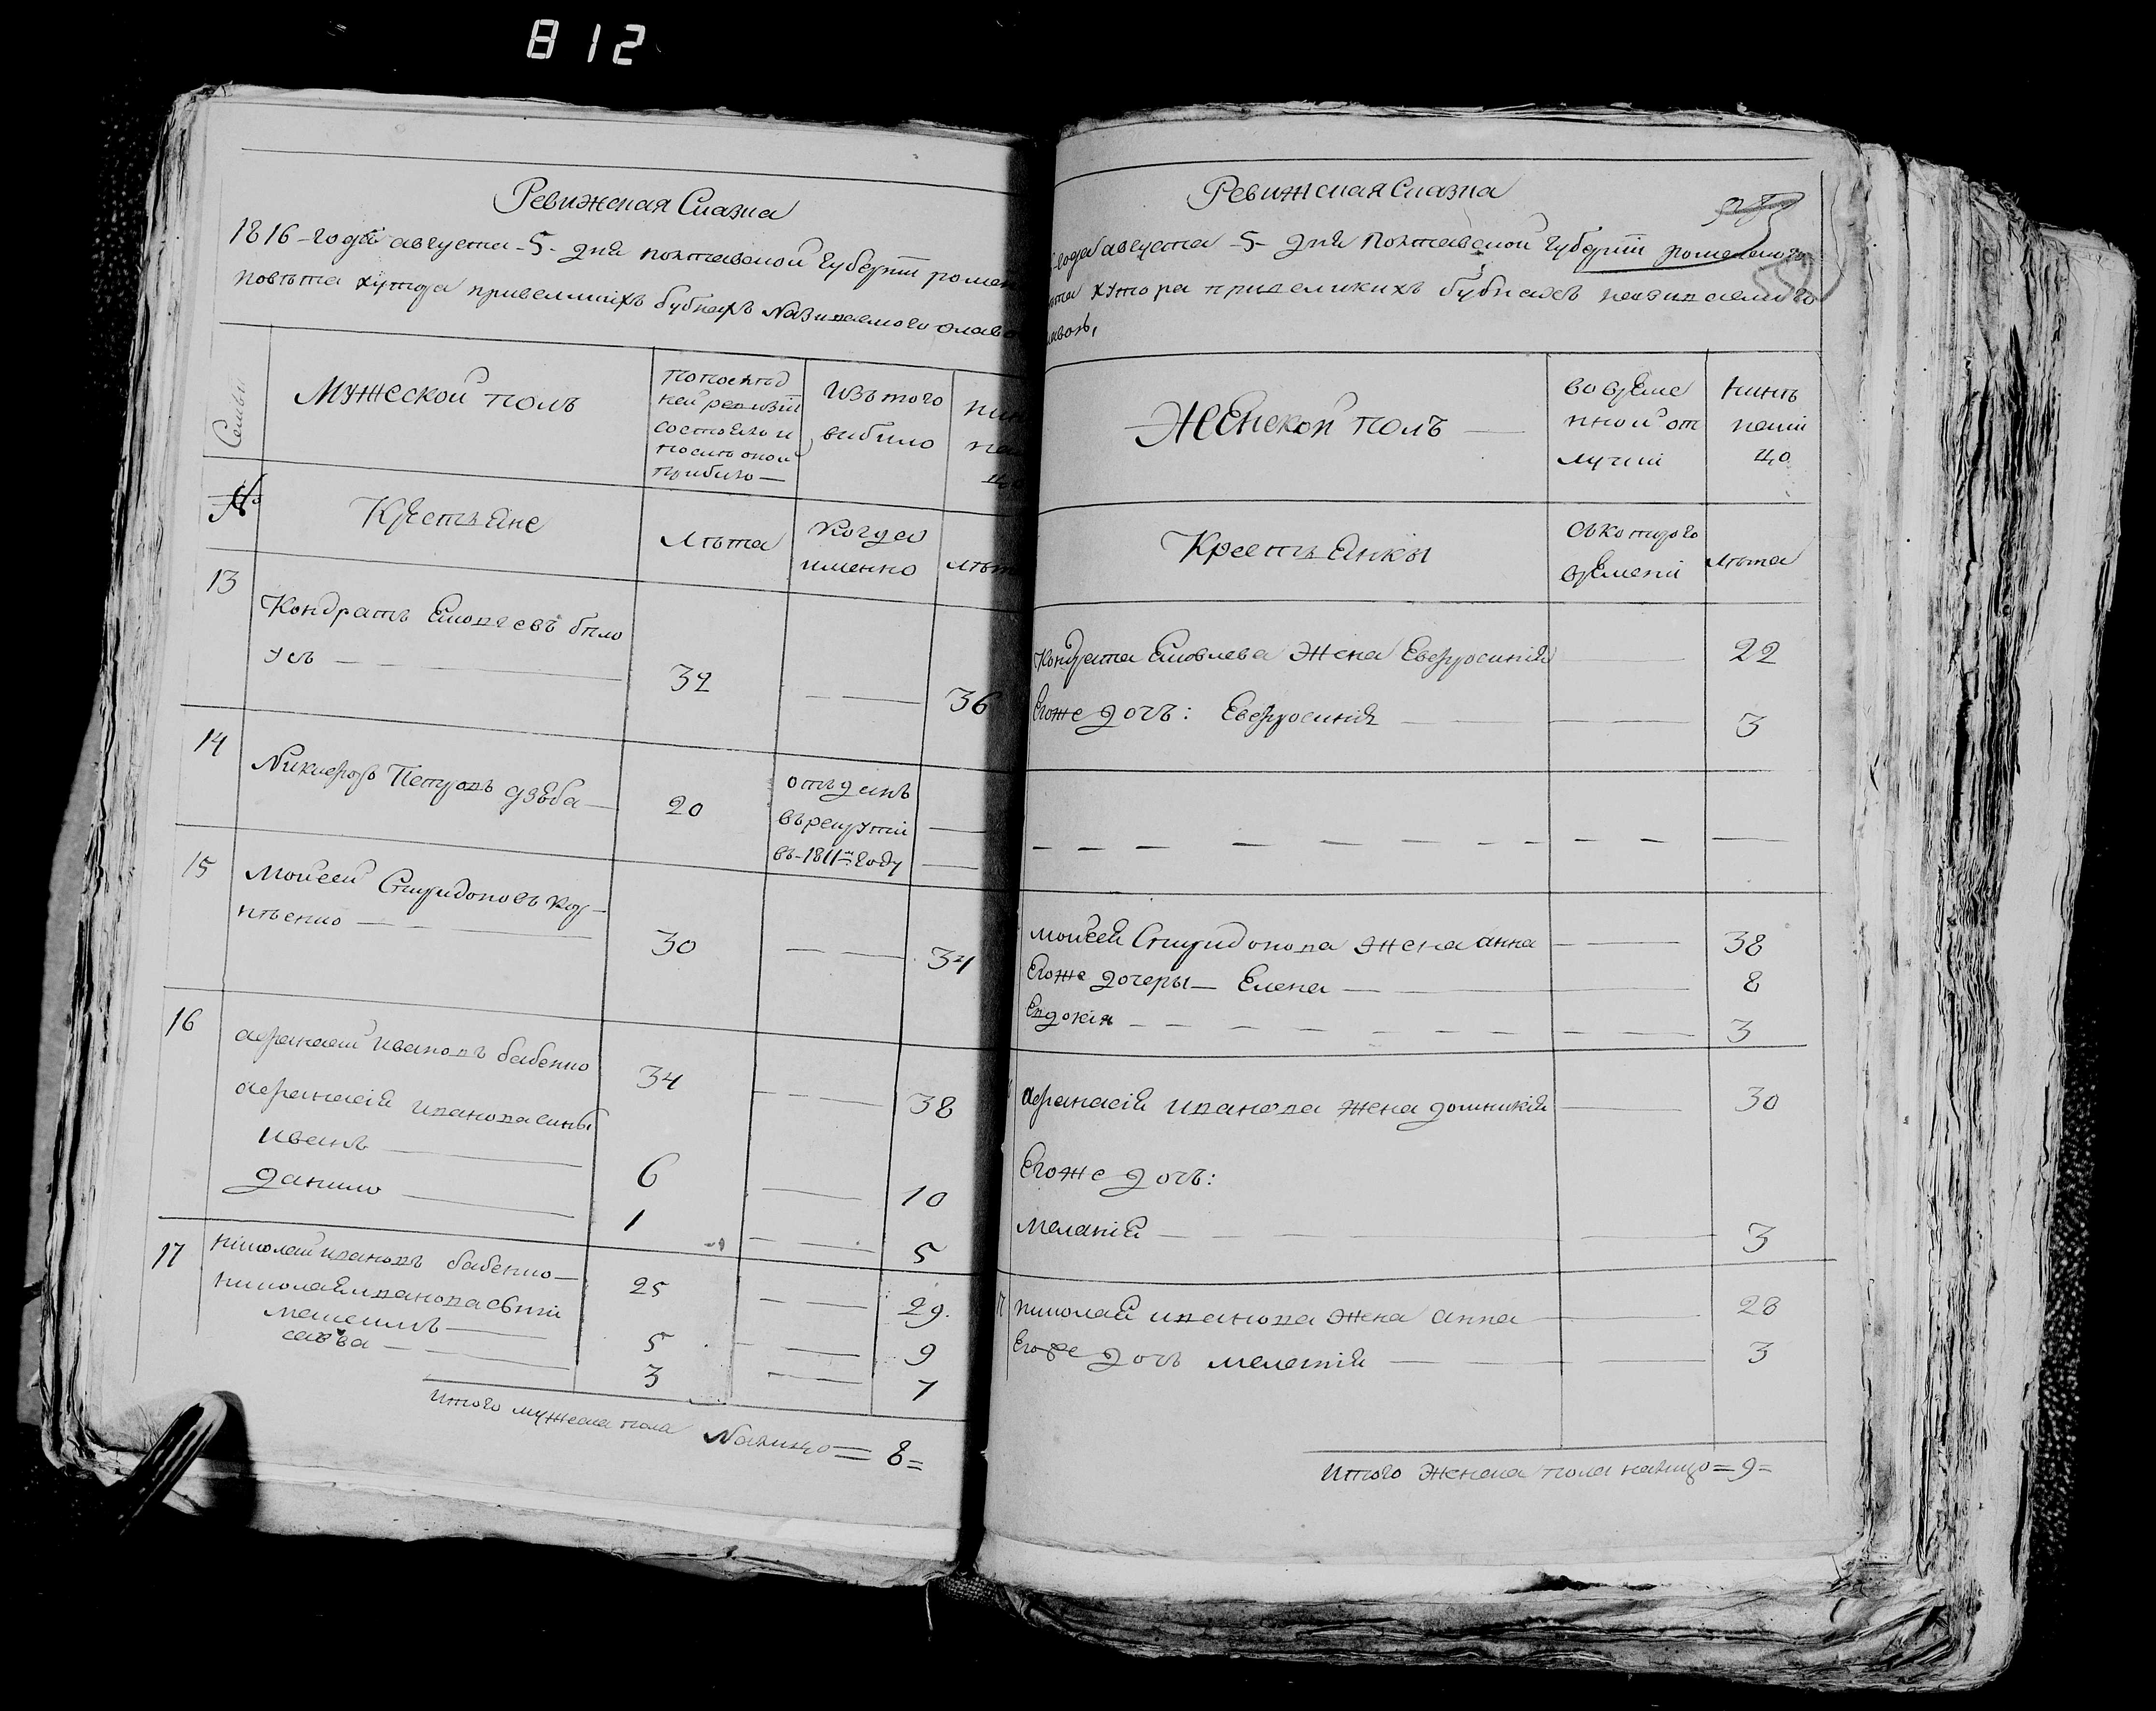 812
Ревижская Сказка
1816-года августа-5-дня полтавской губернїи ромен
повѣта хутора привеликихъ бубнахъ Називаемого
Семьи
Мужеской полъ
попослѣд
ней ревизїи
состояло и
послѣ оной
прибило —
Изъ того
вибило
№
Крестьяне
Лѣта
Когда
именно
лѣта
13
Кондратъ Яковлевъ бѣло
усъ — — 32 — — 36
14
Никифоръ Петровъ дзюба — 20
отъданъ
въ рекрути
въ-1811м году
15
Мойсей Спиридоновъ кор-
нѣенко — — 30 — — 34
16
афанасий Ивановъ бабенко 34 — — 38
афанасія иванова сины
Иванъ — 6 — 10
данило — 1 — — 5
17
николай ивановъ бабенко — 25 — — 29.
николая иванова синїи
5 — — 9
савва — — 3 — — 7
Итого мужеска пола Налицо = 8 =
Ревижская Сказка
года августа -5- дня Полтавской губернїи роменского
хутора привеликихъ бубнахъ називаемого
Женской полъ —
во време
нной от
лучки
Нинѣ
нали
цо
Крестьянки
Съкоторого
времени
лѣта
Кондрата Яковлева Жена Евфросинія — 22
Егоже дочъ: Евфросинія — — 3
— — — — — — — — — —
Мойсея Спиридонова жена анна — — 38
Егоже дочеры — Елена — — 8
Евдокія — — — — — — — — 3
афанасія иванова жена домникія — 30
Егоже дочъ:
Меланія — — — — — 3
17 николая иванова жена анна — 28
Егоже дочъ мелания — — — 3
Итого женска пола налицо = 9 =